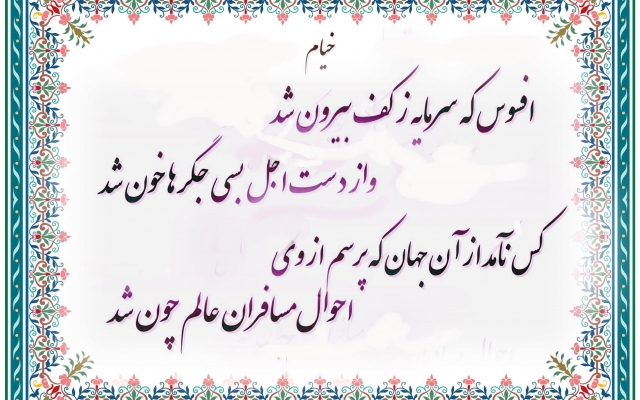 خیام
افسوس که سرمایه ز کف بیرون شد
واز دست اجل بسی جگرها خون شد
کس نآمد از آن جهان که پرسم از وی
احوال مسافران عالم چون شد